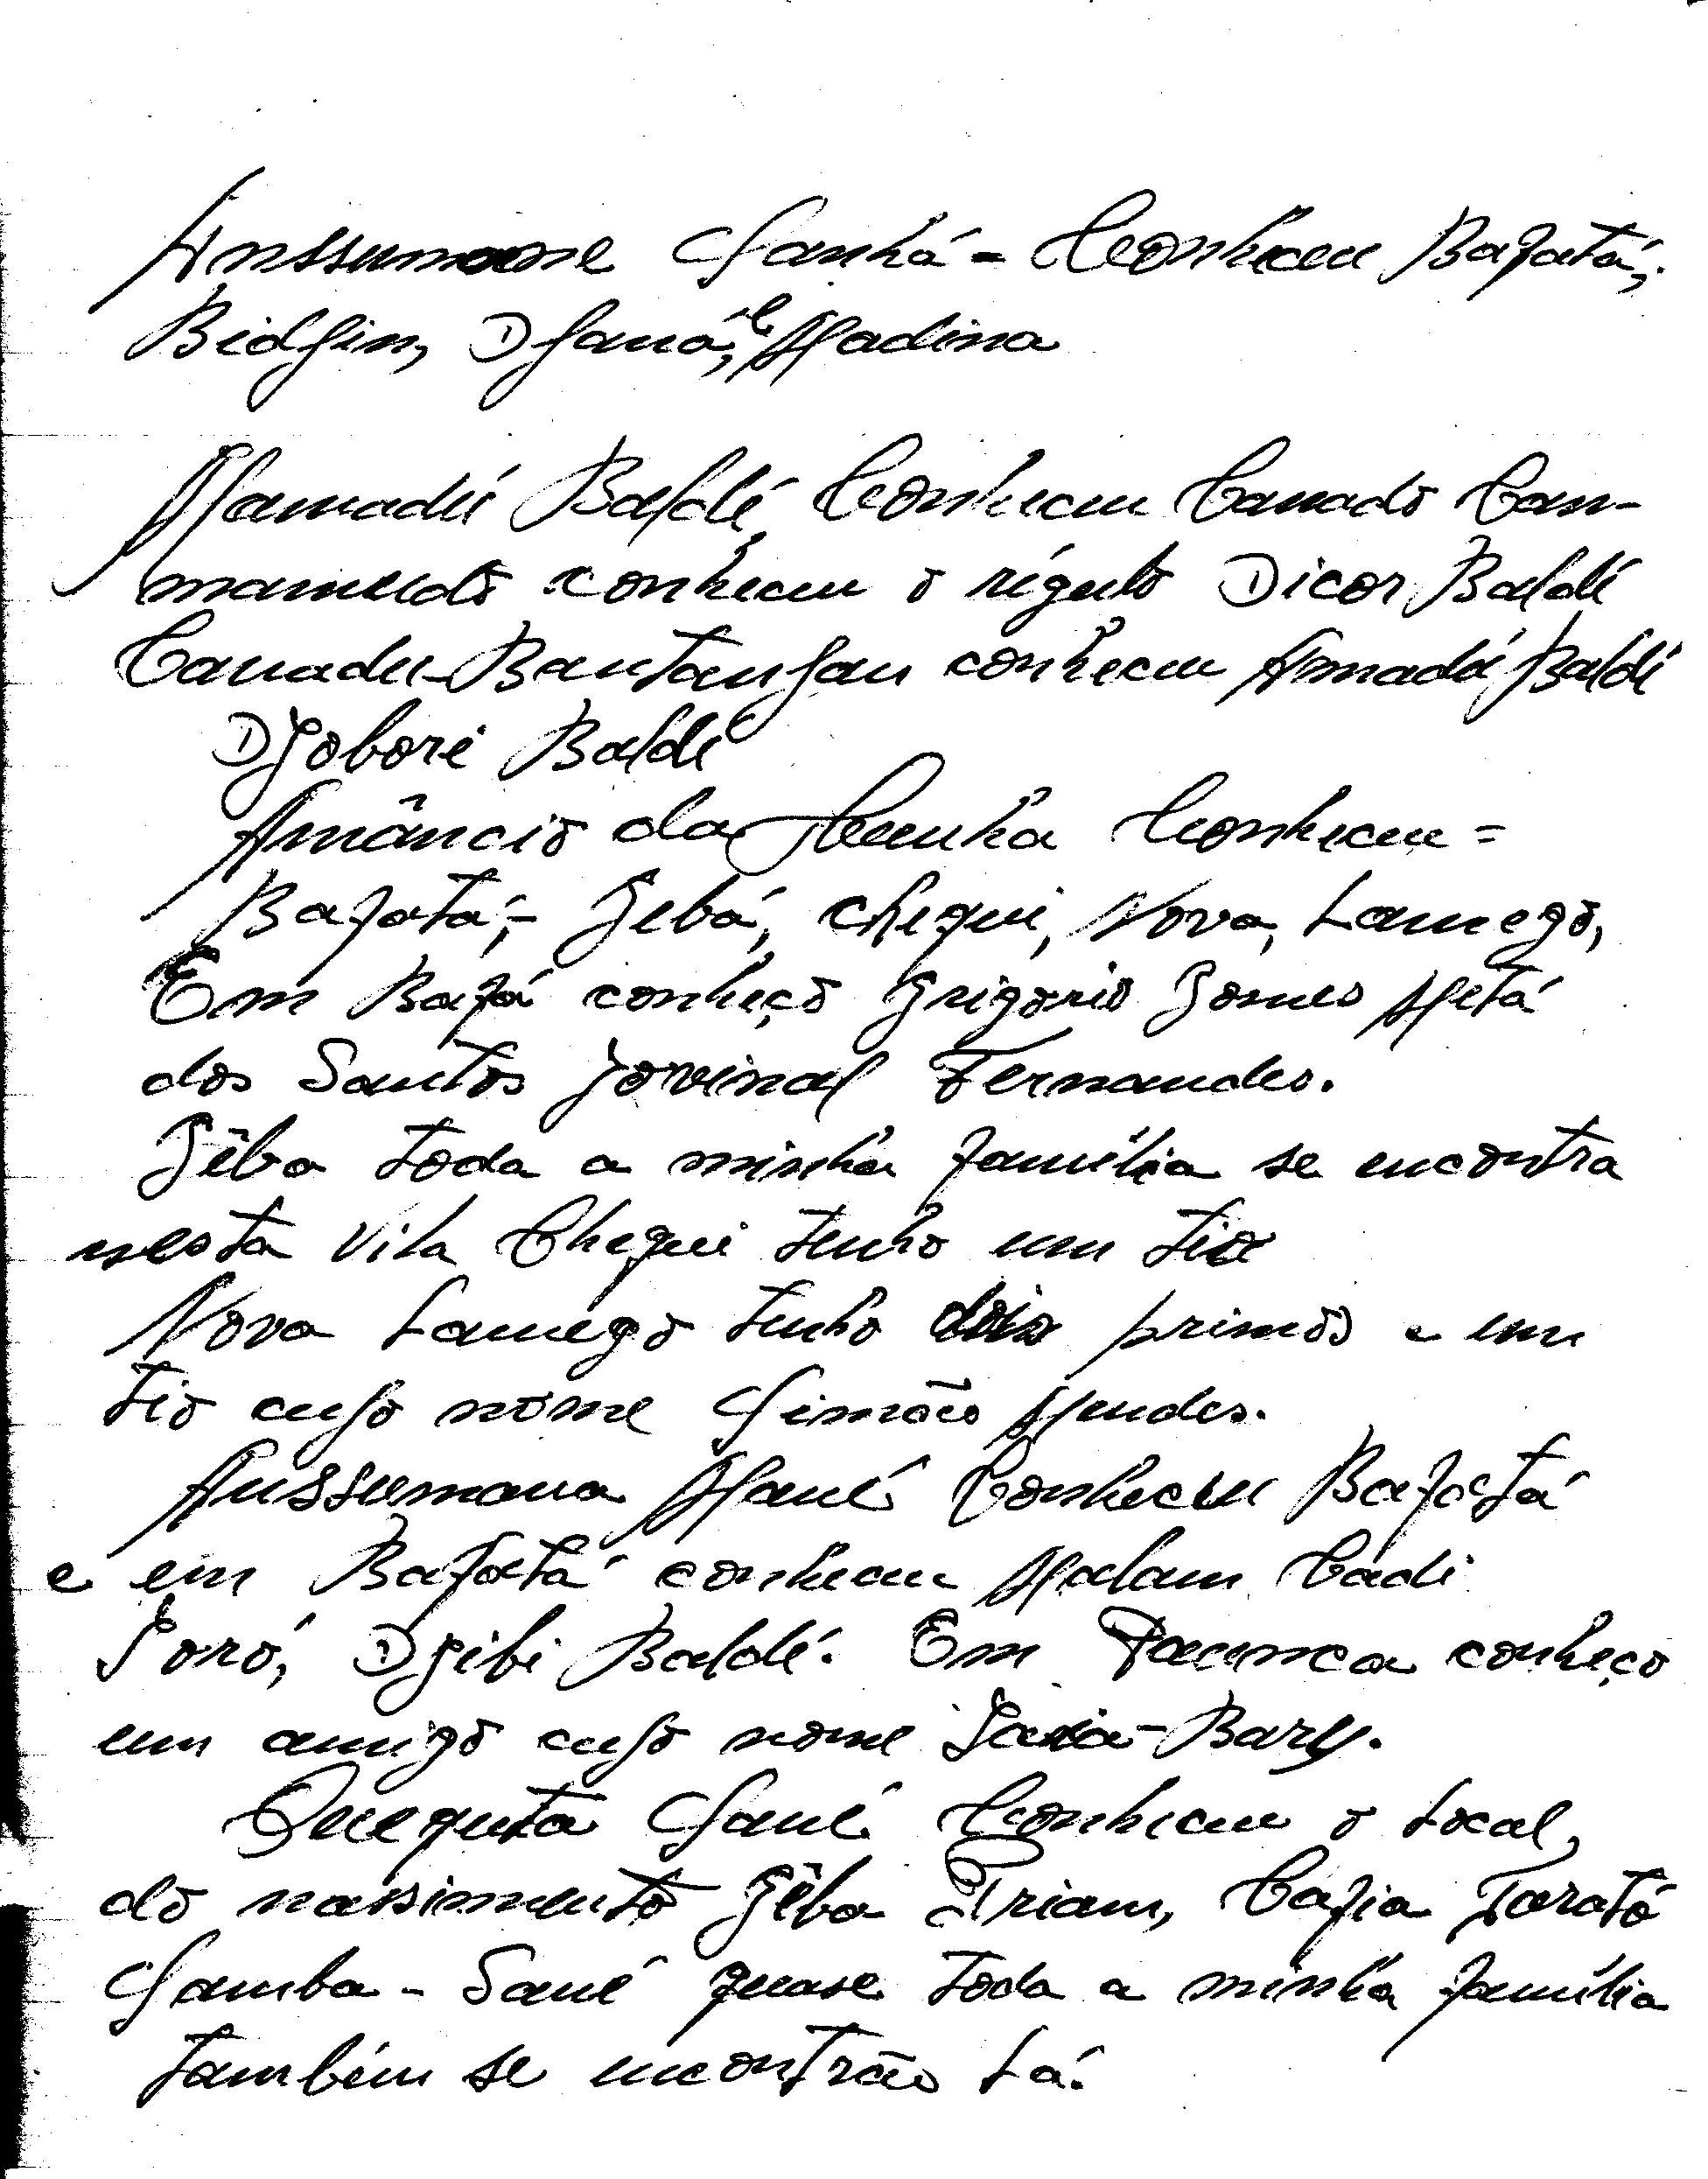 Anssumane Sanhá - Conheceu Bafatá,
Bidjin, Djaná, e Madina
Mamadú Baldé, Conheceu Canado Can-
mamudo conheceu o régulo Dicor Baldé
Canadu-Bantanjan conheceu Amadú Baldé
Djobori Baldé
Amâncio da Cunha Conheceu =
Bafatá,- Jebá, chequi, Nova, Lamego,
Em Bafá conheço Grigorio Gomes Metá
dos Santos Jovinal Fernandes.
Gêba toda a minha família se encontra
nesta Vila Chequi tenho um tio
Nova Lamego tenho dois primos e um
tio cujo nome Simão Mendes.
Anssumana Mané Conheceu Bafatá
e em Bafatá conheceu Malam Cadi
Soró, Djibi Baldé. Em Paunca conheço
um amigo cujo nome Iaia-Bary.
Quequta Sané Conheceu o local,
do nassimento Gêba Priam, Cafia Tarató
Samba - Sané quase toda a minha família
também se encontrão lá.